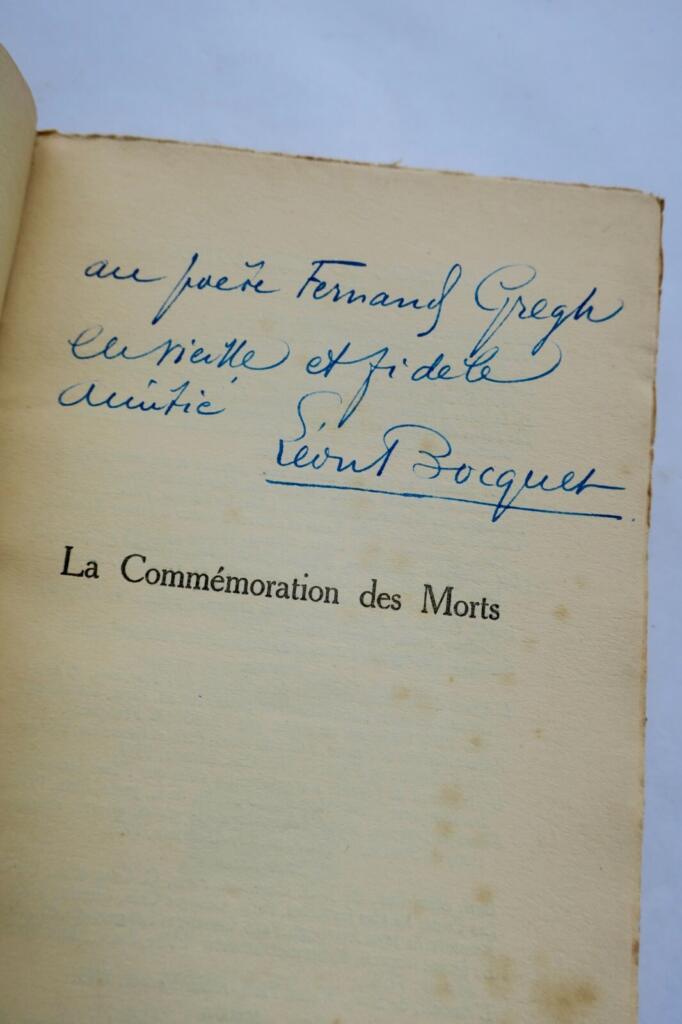 au poète Fernand Gregh
en vieille et fidèle
amitié
Léon Bocquet
La Commémoration des Morts